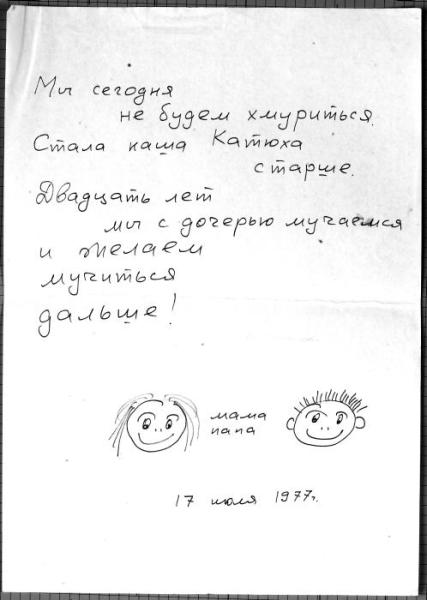 Мы сегодня
не будем хмуриться.
Стала наша Катюха
старше.
Двадцать лет
мы с дочерью мучаемся
и желаем
мучиться
дальше!
мама
папа
17 июля 1977г.